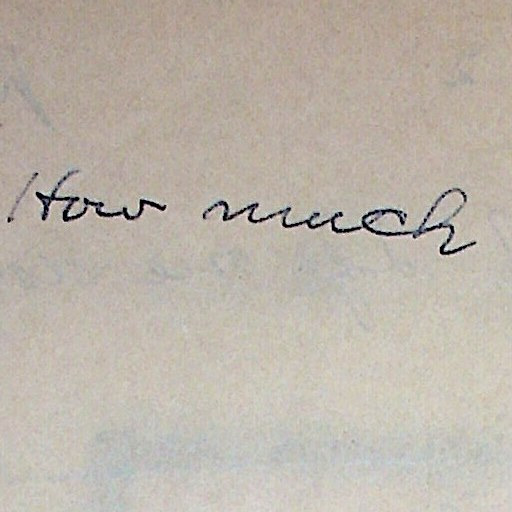 How much